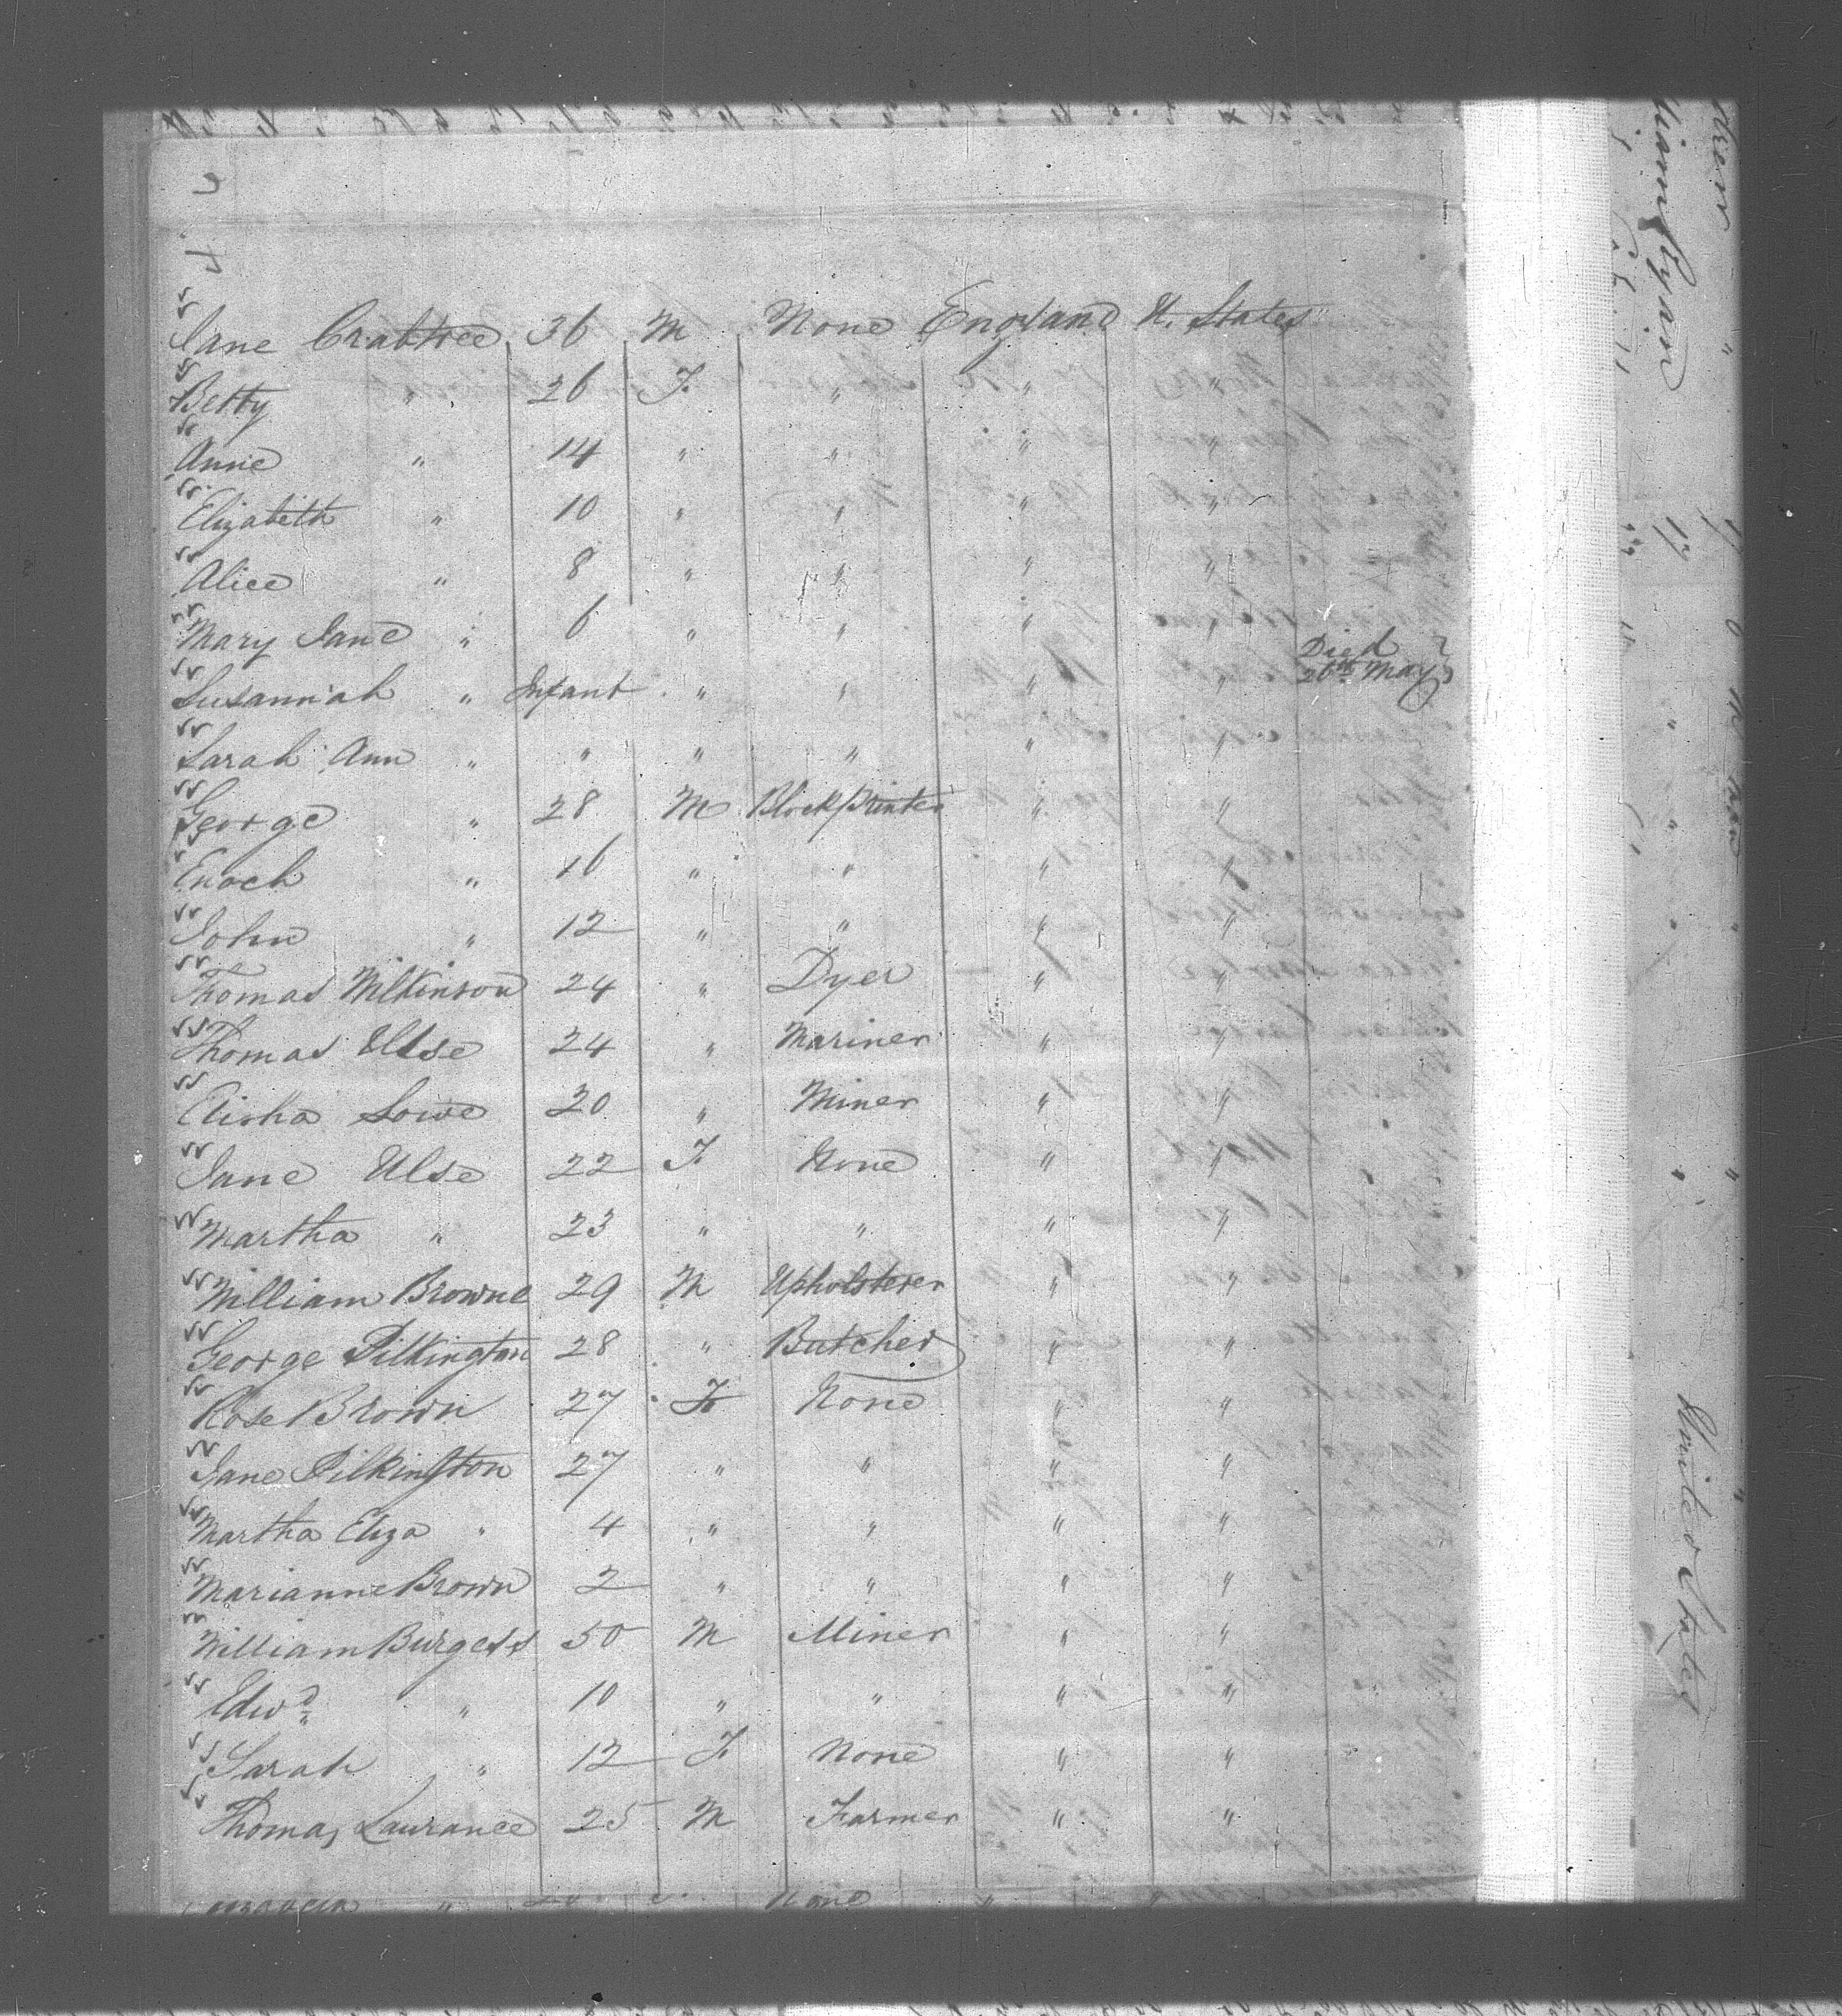 Jane Crabtree 36 M None England U. States
Betty " 26 F. " " "
Anne " 14 " " " "
Elizabeth " 10 " " " "
Alice " 8 " " " "
Mary Jane " 6 " " " "
Susannah " Infant " " " " Died 26th May
Sarah Ann " " " " " "
George " 28 M Block Printer " "
Enoch " 16 " " " "
John " 12 " " " "
Thomas Wilkinson 24 " Dyer " "
Thomas Ulse 24 " Mariner " "
Elisha Lowe 30 " Miner " "
Jane Ulse 22 F None " "
Martha " 23 " " " "
William Browne 29 M Upholsterer " "
George Pilkington 28 " Butcher " "
Rose Brown 27 F None " "
Jane Pilkington 27 " " " "
Martha Eliza " 4 " " " "
Marianne Brown 2 " " " "
William Burgess 50 M Miner " "
Edwd " 10 " " " "
Sarah " 12 F. None " "
Thomas Laurance 25 M Farmer " "
None
Ryan 17
United States